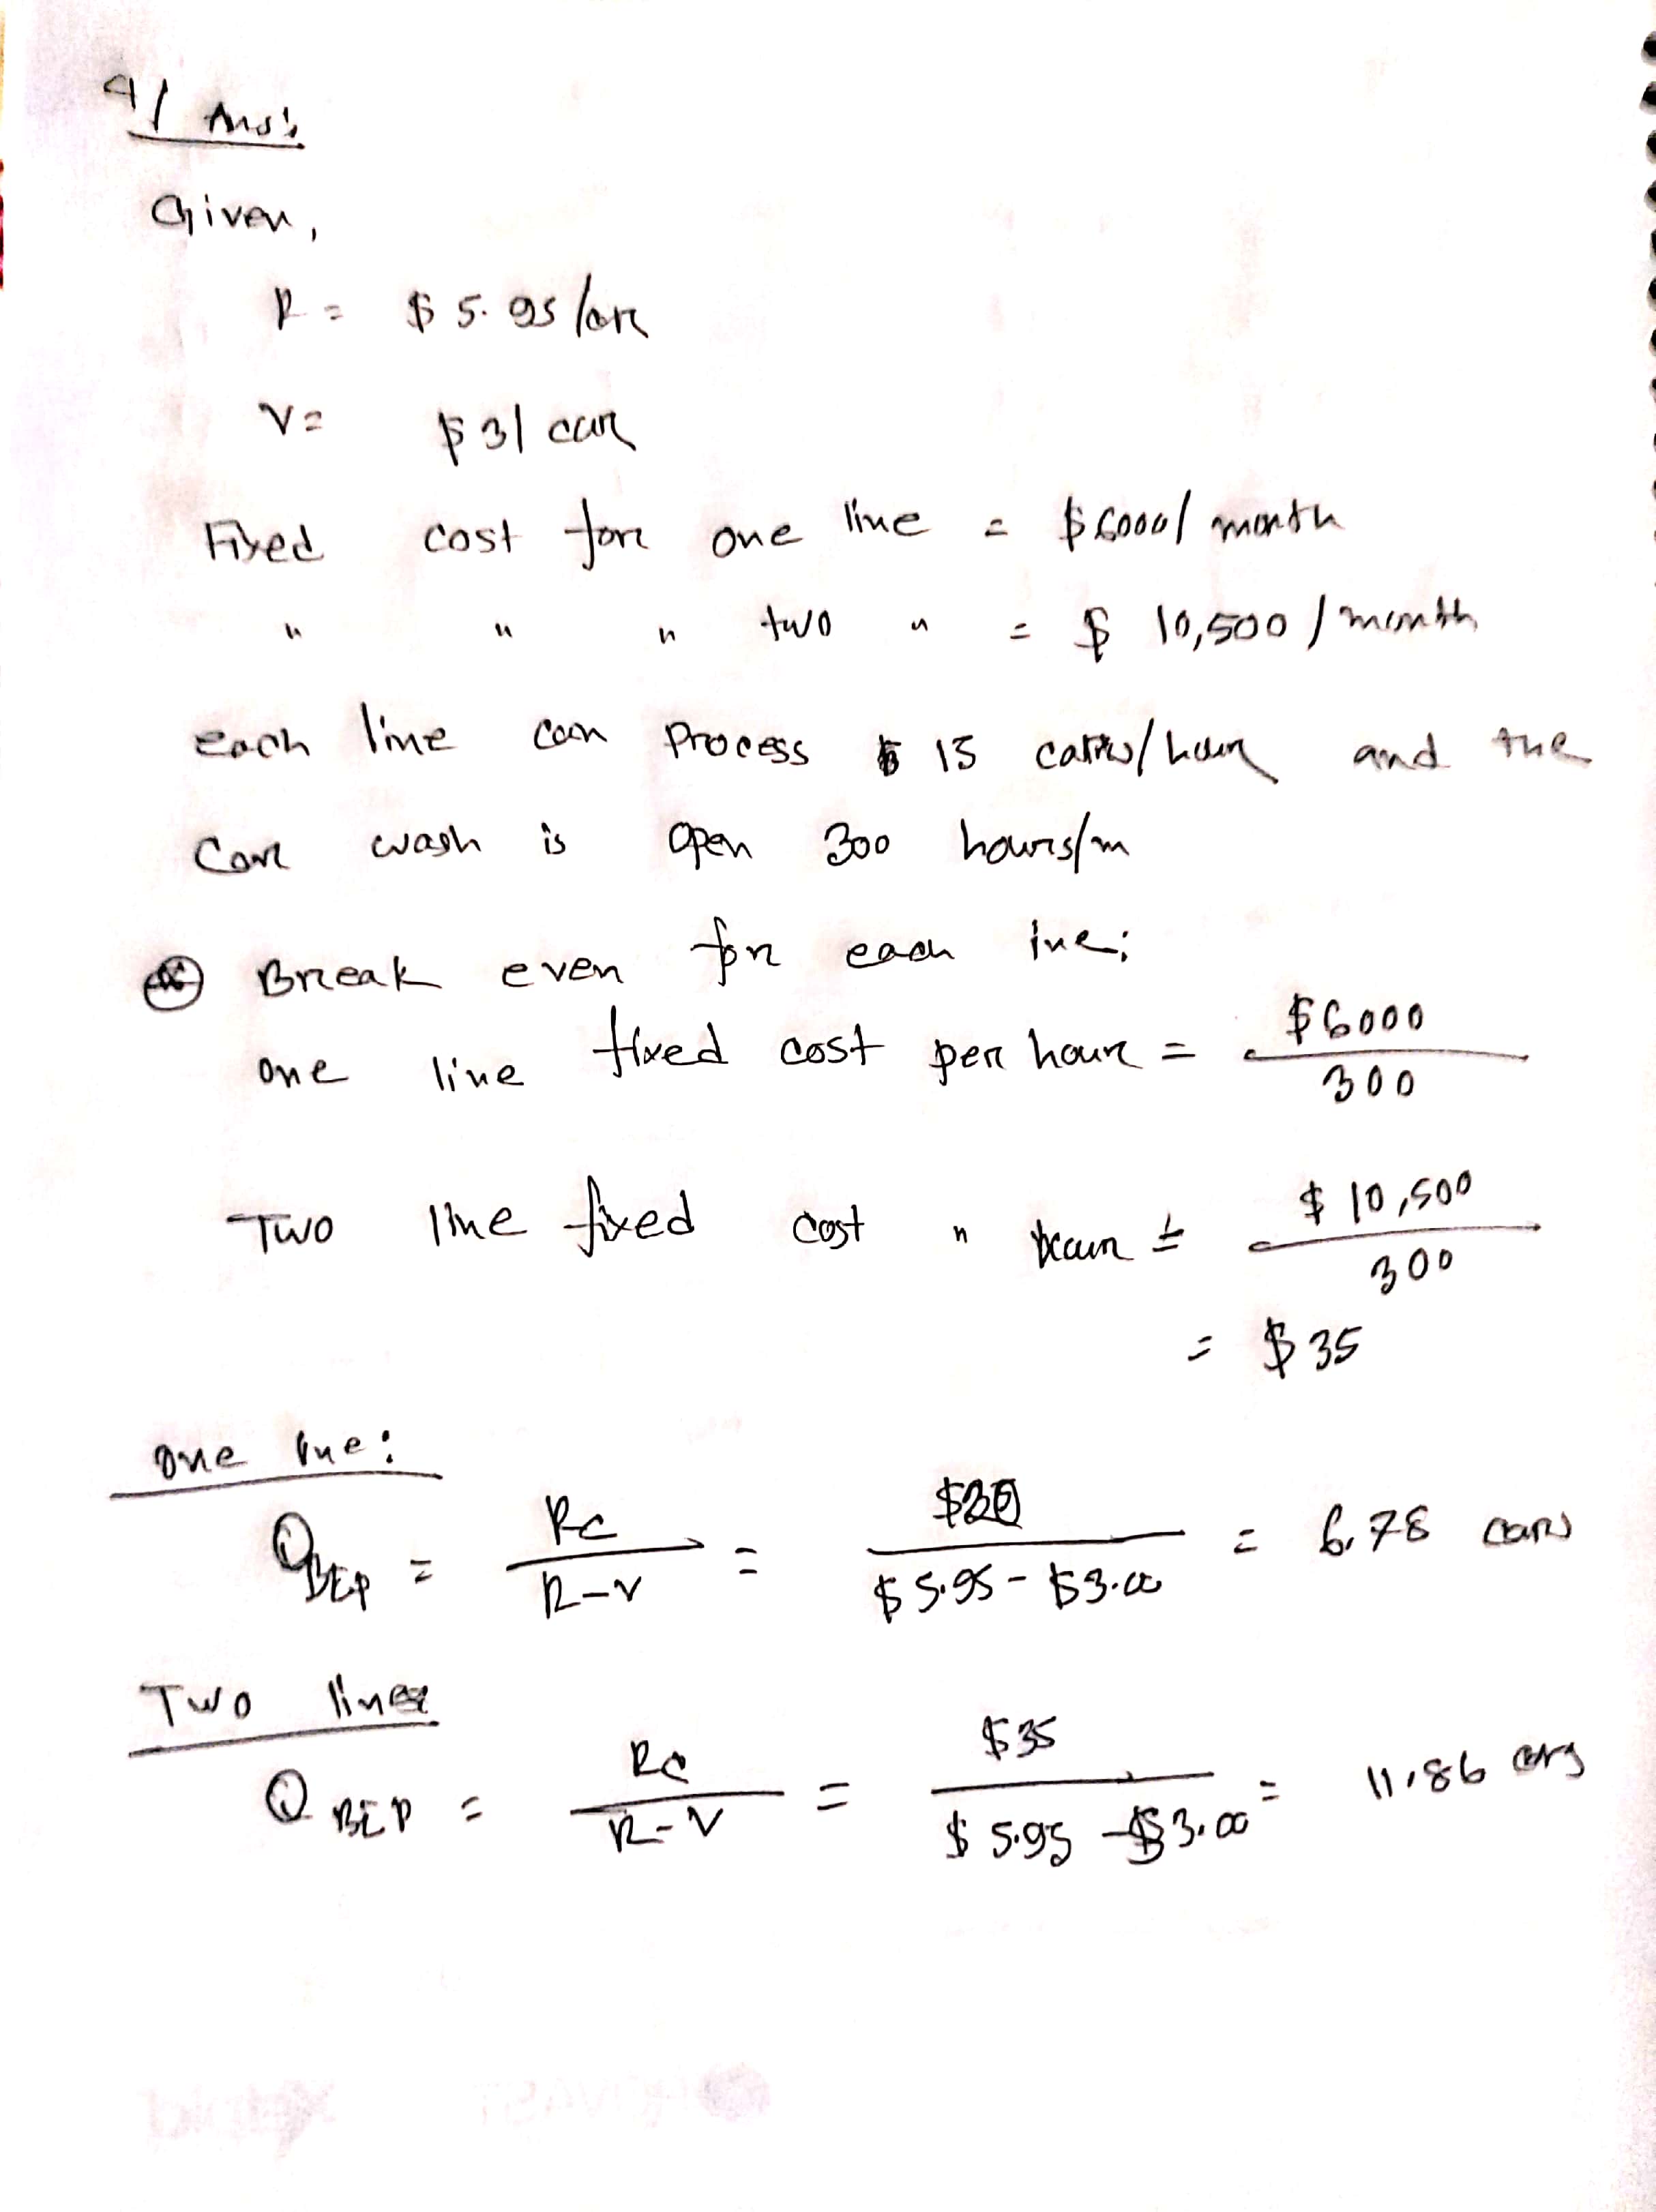 4/ Ans:
Given,
R = $ 5.95/car
V = $3/ car
Fixed cost for one line = $6000/ month
" " " two " = $ 10,500 / month
each line can process 15 cars/hour and the
Car wash is open 300 hours/m
Break even for each line:
one line fixed cost per hour = $6000 / 300
Two line fixed cost " hour = $ 10,500 / 300
= $ 35
one line:
Q BEP = Rc / R-V = $20 / $5.95 - $3.00 = 6.78 cars
Two lines
Q BEP = Rc / R-V = $35 / $ 5.95 - $3.00 = 11.86 cars